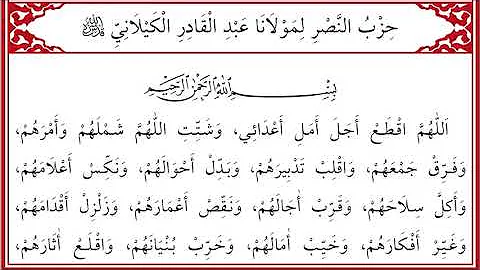 حِزْبُ النَّصْرِ لِمَوْلَانَا عَبْدِ الْقَادِرِ الْكَيْلَانِيِّ
بِسْمِ اللهِ الرَّحْمٰنِ الرَّحِيمِ
اَللّٰهُمَّ اقْطَعْ أَجَلَ أَمَلِ أَعْدَائِي، وَشَتِّتِ اللّٰهُمَّ شَمْلَهُمْ وَأَمْرَهُمْ،
وَفَرِّقْ جَمْعَهُمْ، وَاقْلِبْ تَدْبِيرَهُمْ، وَبَدِّلْ أَحْوَالَهُمْ، وَنَكِّسْ أَعْلَامَهُمْ،
وَأَكِلَّ سِلَاحَهُمْ، وَقَرِّبْ اٰجَالَهُمْ، وَنَقِّصْ أَعْمَارَهُمْ، وَزَلْزِلْ أَقْدَامَهُمْ،
وَغَيِّرْ أَفْكَارَهُمْ، وَخَيِّبْ اٰمَالَهُمْ، وَخَرِّبْ بُنْيَانَهُمْ، وَاقْلَعْ اٰثَارَهُمْ،